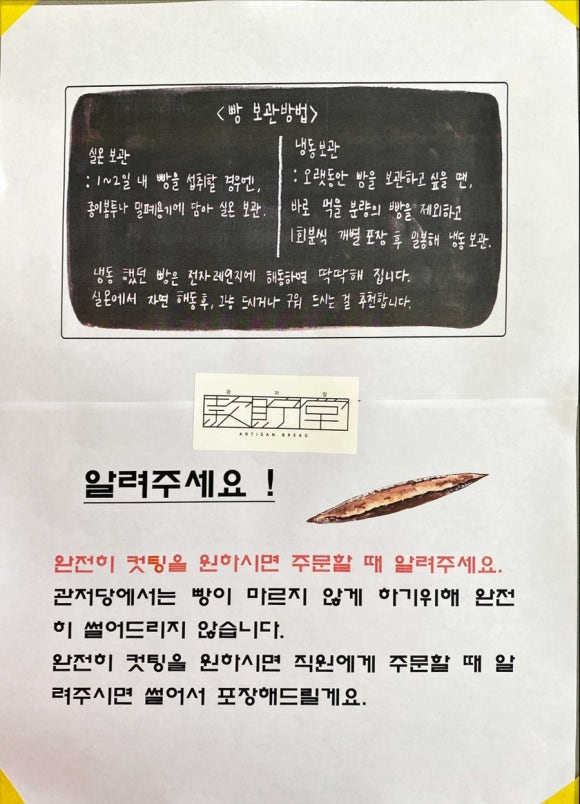 <빵 보관방법>
실온 보관
: 1~2일 내 빵을 섭취할 경우엔,
종이봉투나 밀폐용기에 담아 실온 보관.
냉동보관
: 오랫동안 빵을 보관하고 싶을 땐,
바로 먹을 분량의 빵을 제외하고
1회분씩 개별 포장 후 밀봉해 냉동 보관.
냉동 했던 빵은 전자레인지에 해동하면 딱딱해 집니다.
실온에서 자연 해동후, 그냥 드시거나 구워 드시는 걸 추천합니다.
관 저 당
款貯堂
ARTISAN BREAD
알려주세요 !
완전히 컷팅을 원하시면 주문할 때 알려주세요.
관저당에서는 빵이 마르지 않게 하기위해 완전
히 썰어드리지 않습니다.
완전히 컷팅을 원하시면 직원에게 주문할 때 알
려주시면 썰어서 포장해드릴게요.